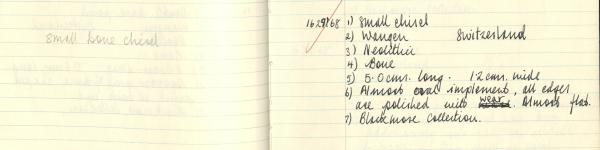 Small bone chisel
1629/68 1) Small chisel
2) Wangen Switzerland
3) Neolithic
4) Bone
5) 5.0 cms. long. 1.2 cms. wide
6) Almost oval implement, all edges
are polished with wear. Almost flat.
7) Blackmore Collection.